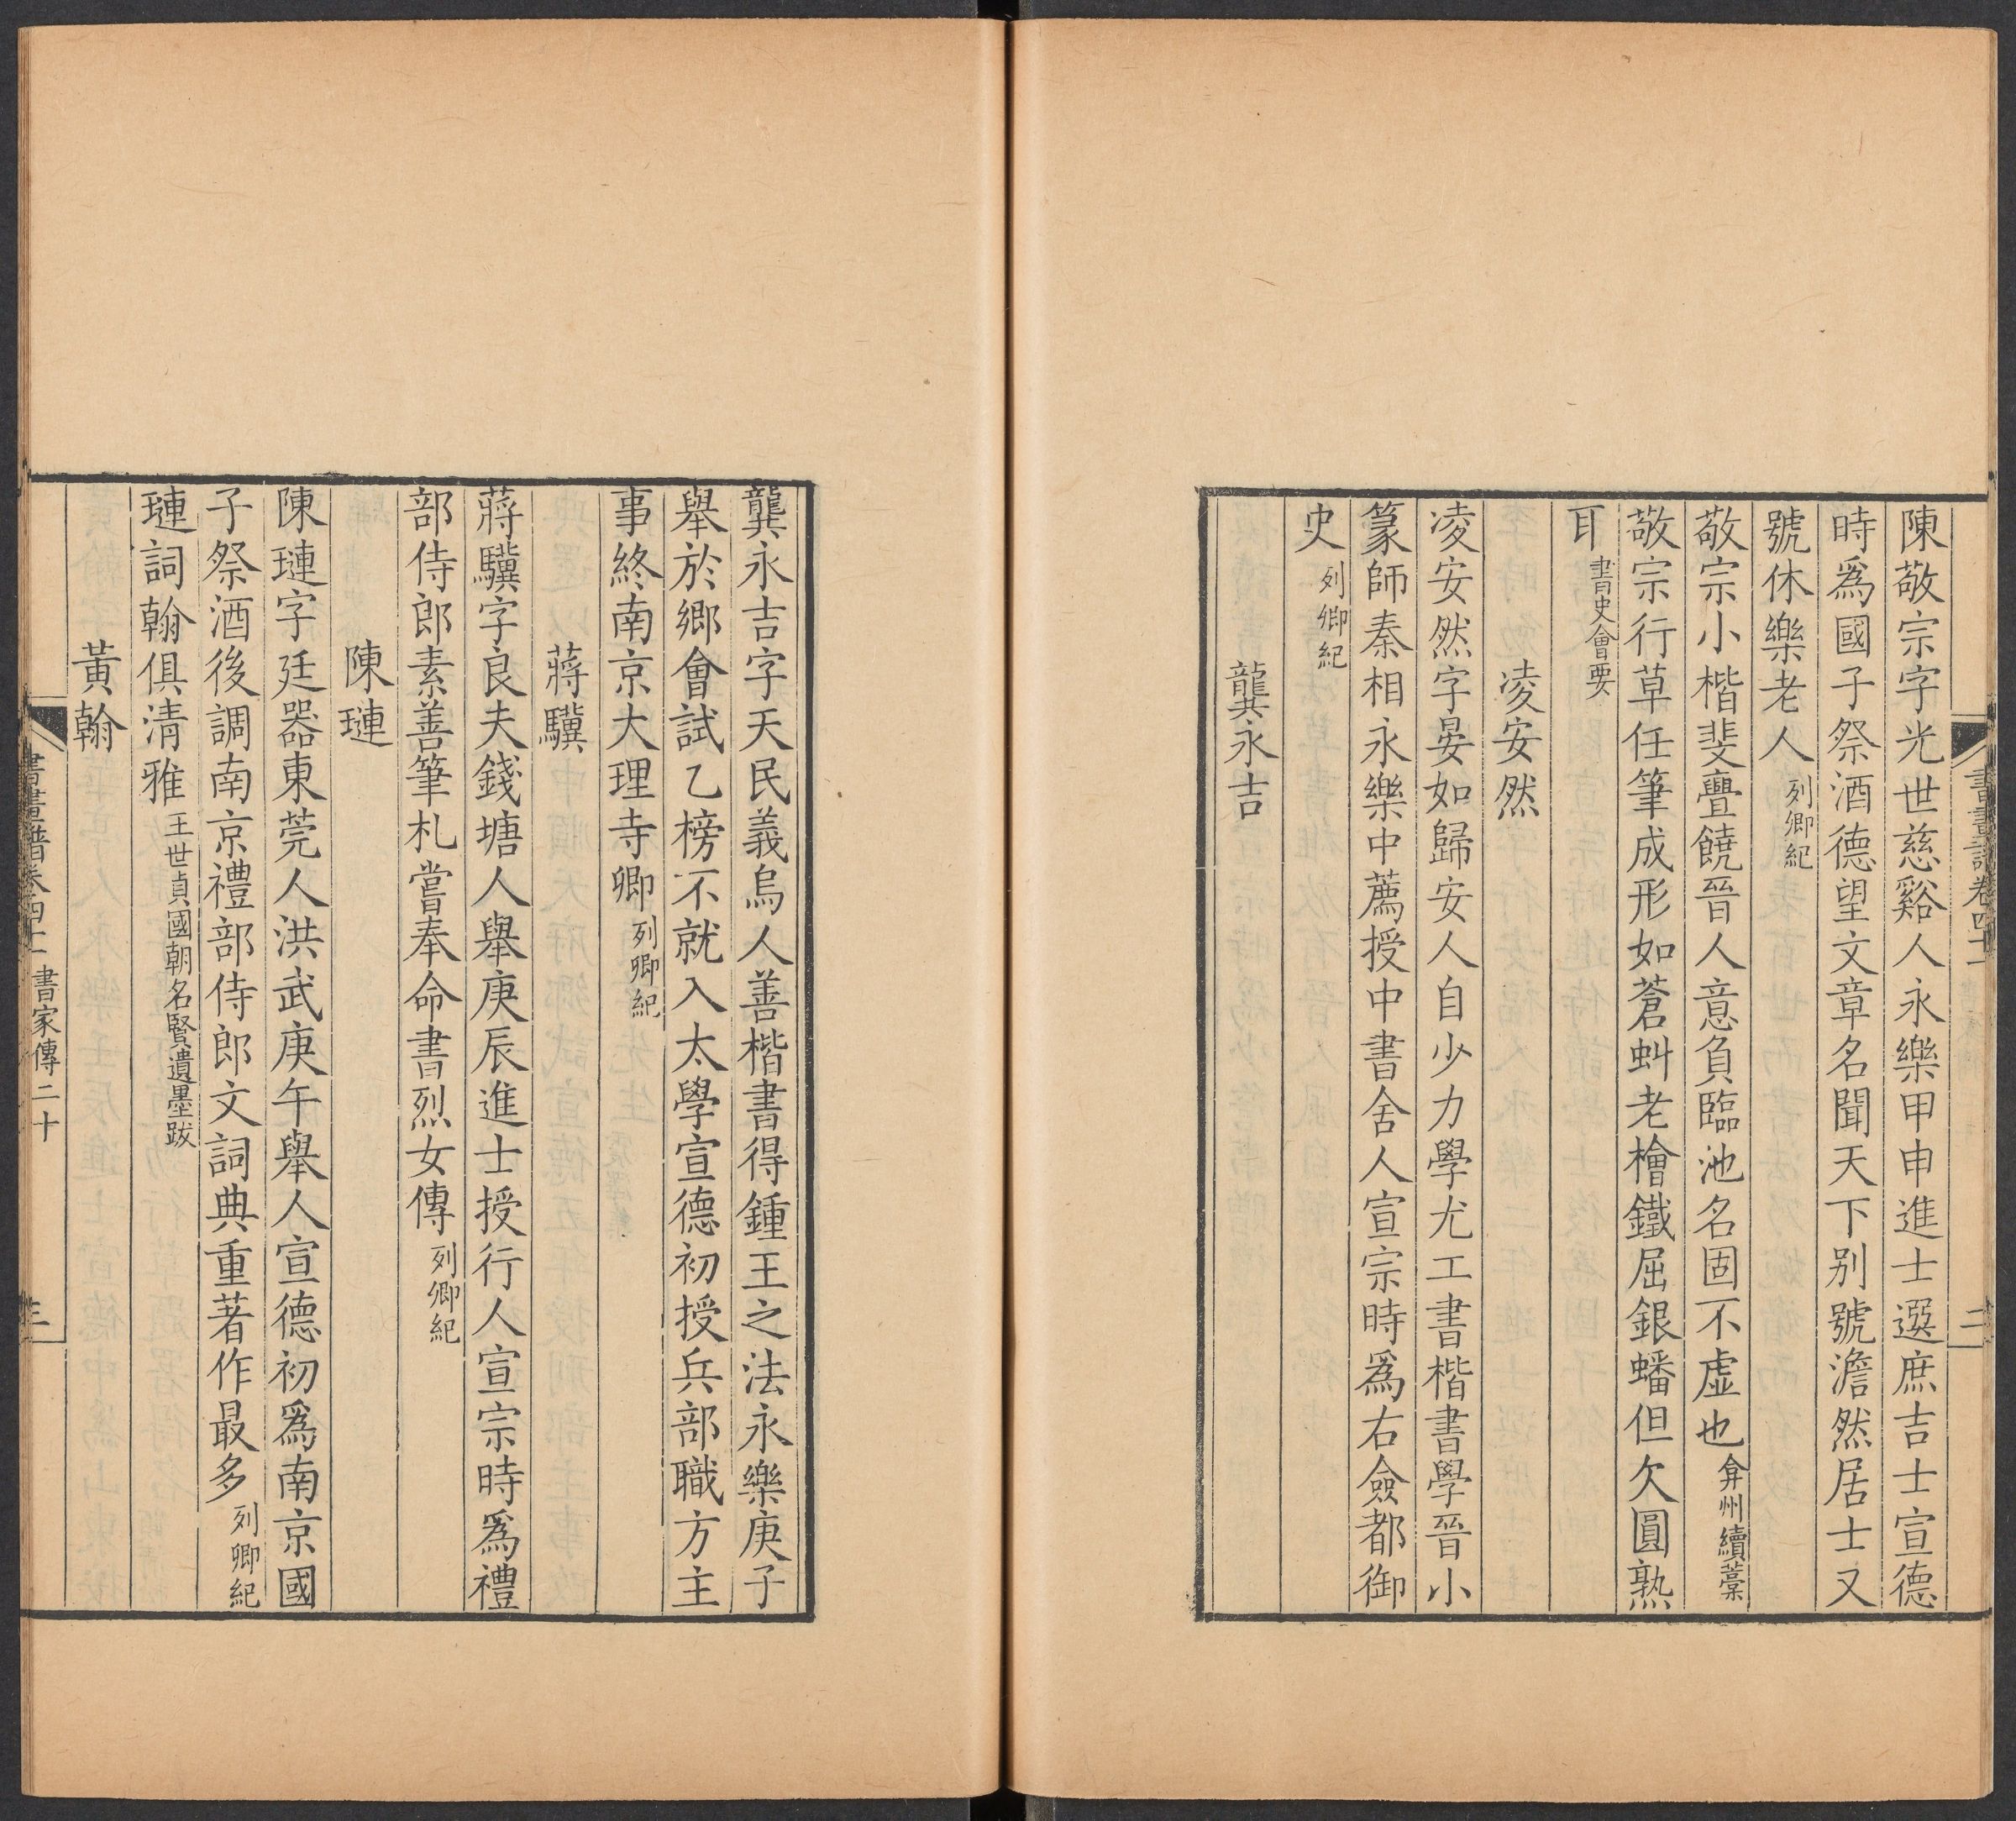 書畫譜卷四十一
二
陳敬宗字光世慈谿人永樂甲申進士選庶吉士宣德
時爲國子祭酒德望文章名聞天下別號澹然居士又
號休樂老人列卿紀
敬宗小楷斐亹饒晉人意負臨池名固不虛也弇州續藁
敬宗行草任筆成形如蒼虯老檜鐵屈銀蟠但欠圓熟
耳書史會要
凌安然
凌安然字晏如歸安人自少力學尤工書楷書學晉小
篆師秦相永樂中薦授中書舍人宣宗時爲右僉都御
史列卿紀
龔永吉
龔永吉字天民義烏人善楷書得鍾王之法永樂庚子
舉於鄉會試乙榜不就入太學宣德初授兵部職方主
事終南京大理寺卿列卿紀
蔣驥
蔣驥字良夫錢塘人舉庚辰進士授行人宣宗時爲禮
部侍郎素善筆札嘗奉命書烈女傳列卿紀
陳璉
陳璉字廷器東莞人洪武庚午舉人宣德初爲南京國
子祭酒後調南京禮部侍郎文詞典重著作最多列卿紀
璉詞翰俱清雅王世貞國朝名賢遺墨跋
黃翰
書畫譜卷四十一 書家傳二十
三